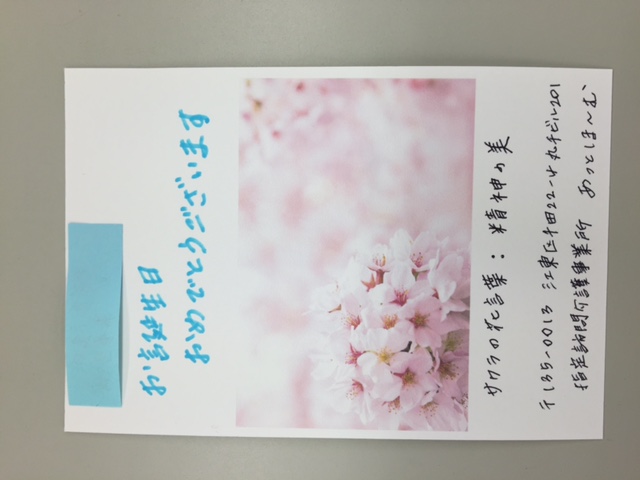 お誕生日
おめでとうございます
サクラの花言葉：精神の美
〒135-0013 江東区千田22-4 丸チビル201
指定訪問介護事業所 あっとほーむ